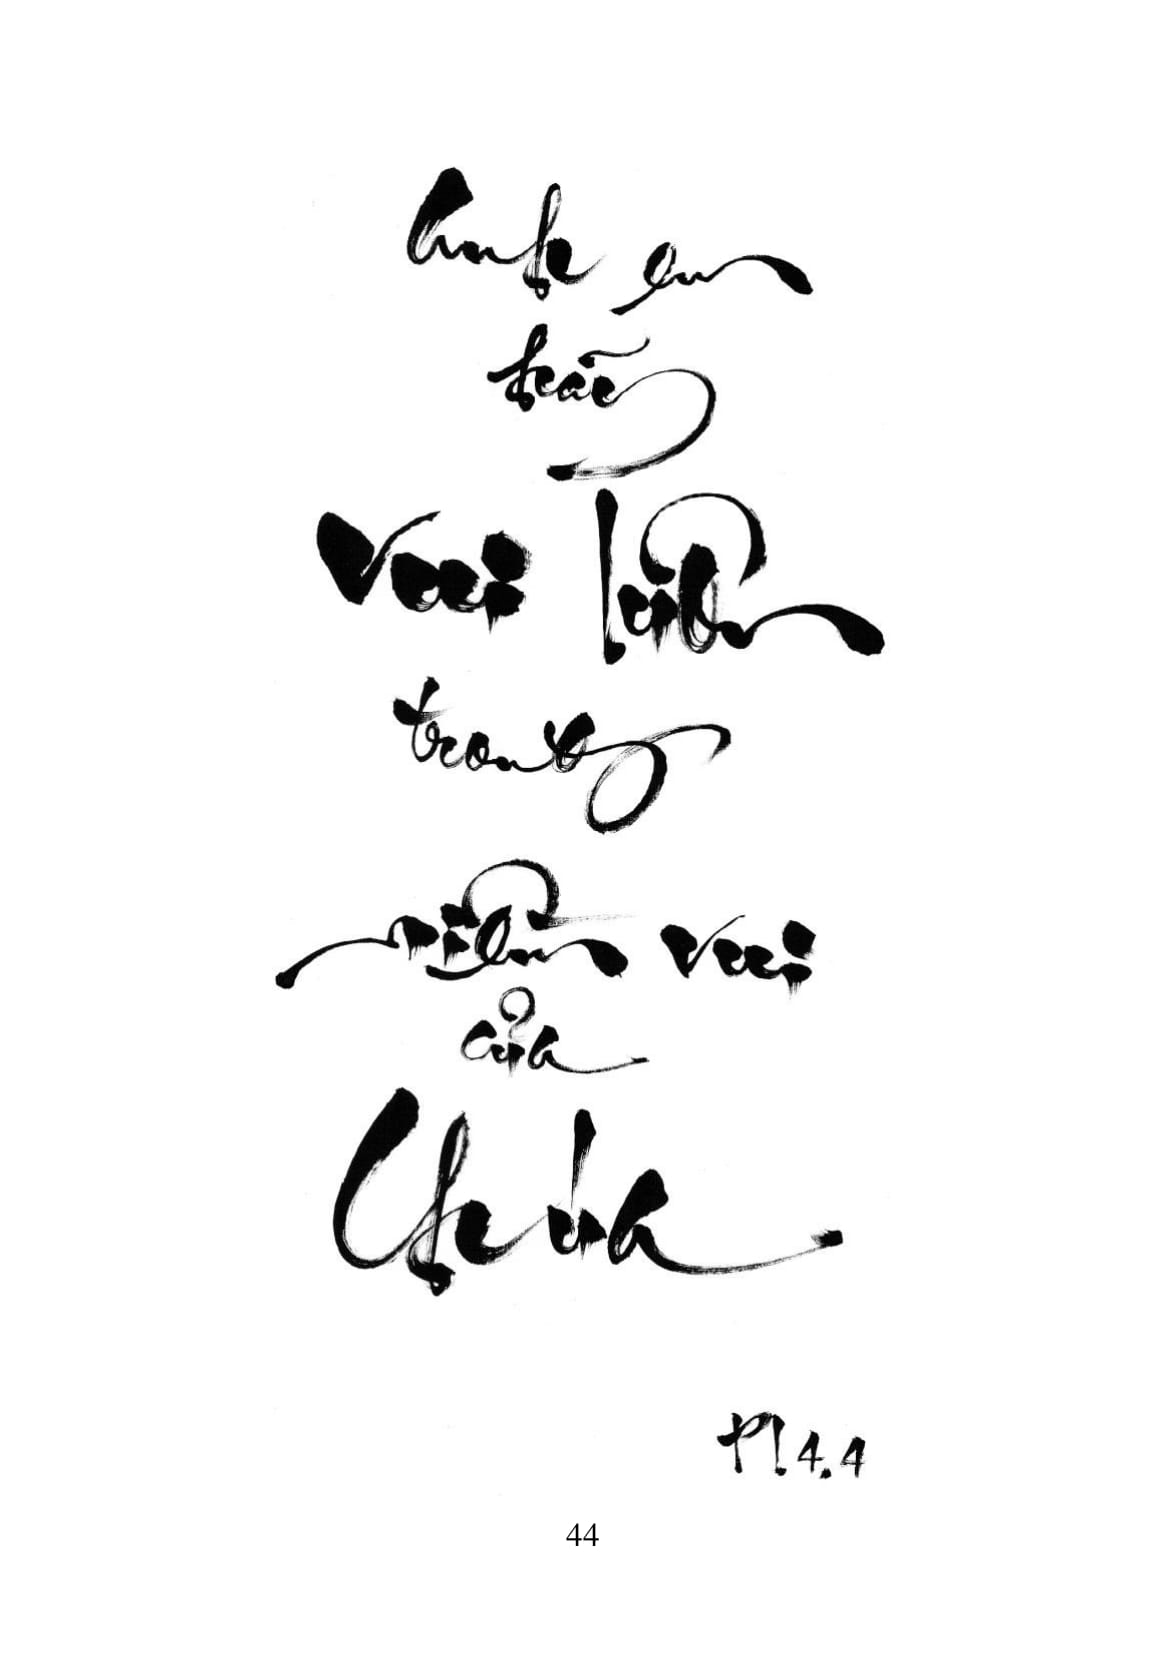 Anh em
hãy
Vui luôn
trong
niềm vui
của
Chúa
Pl 4.4
44